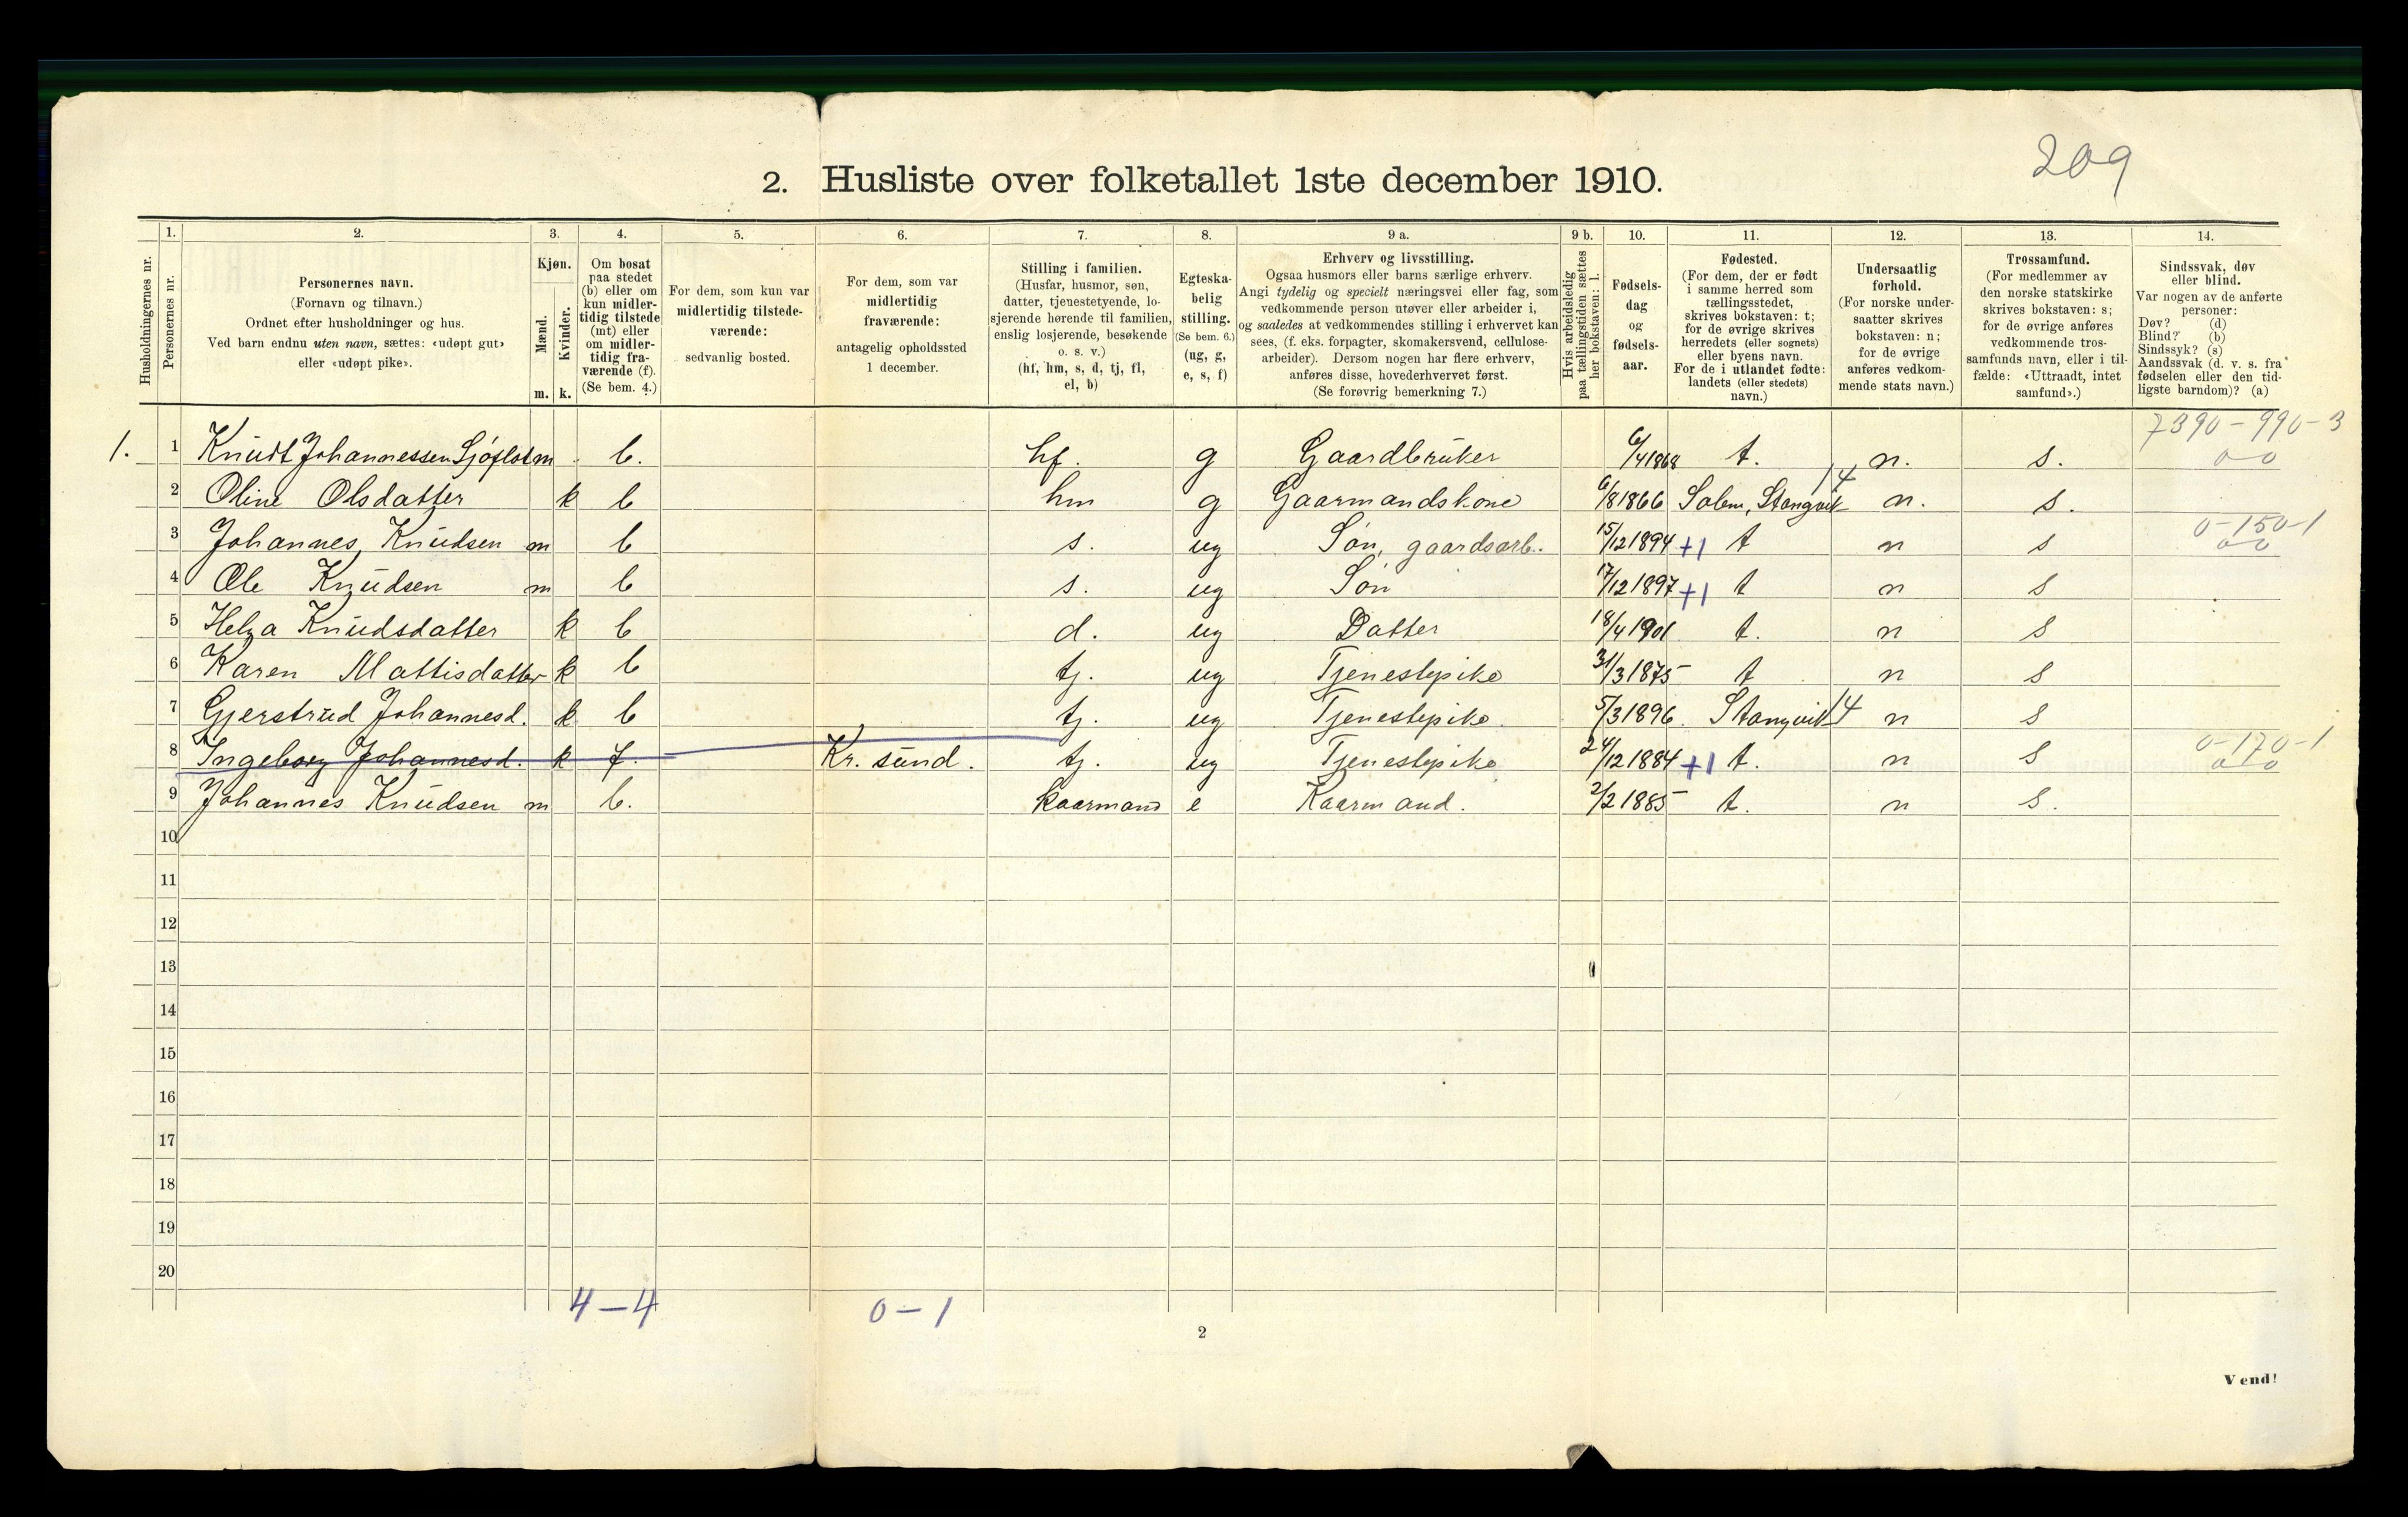 209
2. Husliste over folketallet 1ste december 1910.
Husholdningernes nr.
1.
Personernes nr.
2.
Personernes navn.
(Fornavn og tilnavn.)
Ordnet efter husholdninger og hus.
Ved barn endnu uten navn, sættes: «udøpt gut»
eller «udøpt pike».
3.
Kjøn.
Mænd.
Kvinder.
m. k.
4.
Om bosat
paa stedet
(b) eller om
kun midler-
tidig tilstede
(mt) eller
om midler-
tidig fra-
værende (f).
(Se bem. 4.)
5.
For dem, som kun var
midlertidig tilstede-
værende:
sedvanlig bosted.
6.
For dem, som var
midlertidig
fraværende:
antagelig opholdssted
1 december.
7.
Stilling i familien.
(Husfar, husmor, søn,
datter, tjenestetyende, lo-
sjerende hørende til familien,
enslig losjerende, besøkende
o. s. v.)
(hf, hm, s, d, tj, fl,
el, b)
8.
Egteska-
belig
stilling.
(Se bem. 6.)
(ug, g,
e, s, f)
9 a.
Erhverv og livsstilling.
Ogsaa husmors eller barns særlige erhverv.
Angi tydelig og specielt næringsvei eller fag, som
vedkommende person utøver eller arbeider i,
og saaledes at vedkommendes stilling i erhvervet kan
sees, (f. eks. forpagter, skomakersvend, cellulose-
arbeider). Dersom nogen har flere erhverv,
anføres disse, hovederhvervet først.
(Se forøvrig bemerkning 7.)
9 b.
Hvis arbeidsledig
paa tællingstiden sættes
her bokstaven: l.
10.
Fødsels-
dag
og
fødsels-
aar.
11.
Fødested.
(For dem, der er født
i samme herred som
tællingsstedet,
skrives bokstaven: t;
for de øvrige skrives
herredets (eller sognets)
eller byens navn.
For de i utlandet fødte:
landets (eller stedets)
navn.)
12.
Undersaatlig
forhold.
(For norske under-
saatter skrives
bokstaven: n;
for de øvrige
anføres vedkom-
mende stats navn.)
13.
Trossamfund.
(For medlemmer av
den norske statskirke
skrives bokstaven: s;
for de øvrige anføres
vedkommende tros-
samfunds navn, eller i til-
fælde: «Uttraadt, intet
samfund».)
14.
Sindssvak, døv
eller blind.
Var nogen av de anførte
personer:
Døv? (d)
Blind? (b)
Sindssyk? (s)
Aandssvak (d. v. s. fra
fødselen eller den tid-
ligste barndom)? (a)
7390-990-3
1. 1 Knudt Johannessen Sjøflot m b. hf. g Gaardbruker 6/4 1868 t. n. s. 0-0
2 Oline Olsdatter k b hm g Gaarmandskone 6/8 1866 Solem, Stangvik 14 n. s.
0-150-1
3 Johannes Knudsen m b s. ug Søn, gaardsarb. 15/12 1894 +1 t n s 0-0
4 Ole Knudsen m b s. ug Søn 17/12 1897 +1 t n s
5 Helga Knudsdatter k b d. ug Datter 18/4 1901 t. n s
6 Karen Mattisdatter k b tj. ug Tjenestepike 31/3 1875 t n s
7 Gjerstrud Johannesd. k b tj. ug Tjenestepike 5/3 1896. Stangvik 14 n s
0-170-1
8 Ingeborg Johannesd. k f. Kr. sund. tj. ug Tjenestepike 24/12 1884 +1 t. n s 0-0
9 Johannes Knudsen m b. kaarmand e Kaarmand. 2/2 1885 t. n s.
10
11
12
13
14
15
16
17
18
19
20
4-4 0-1
2
Vend!